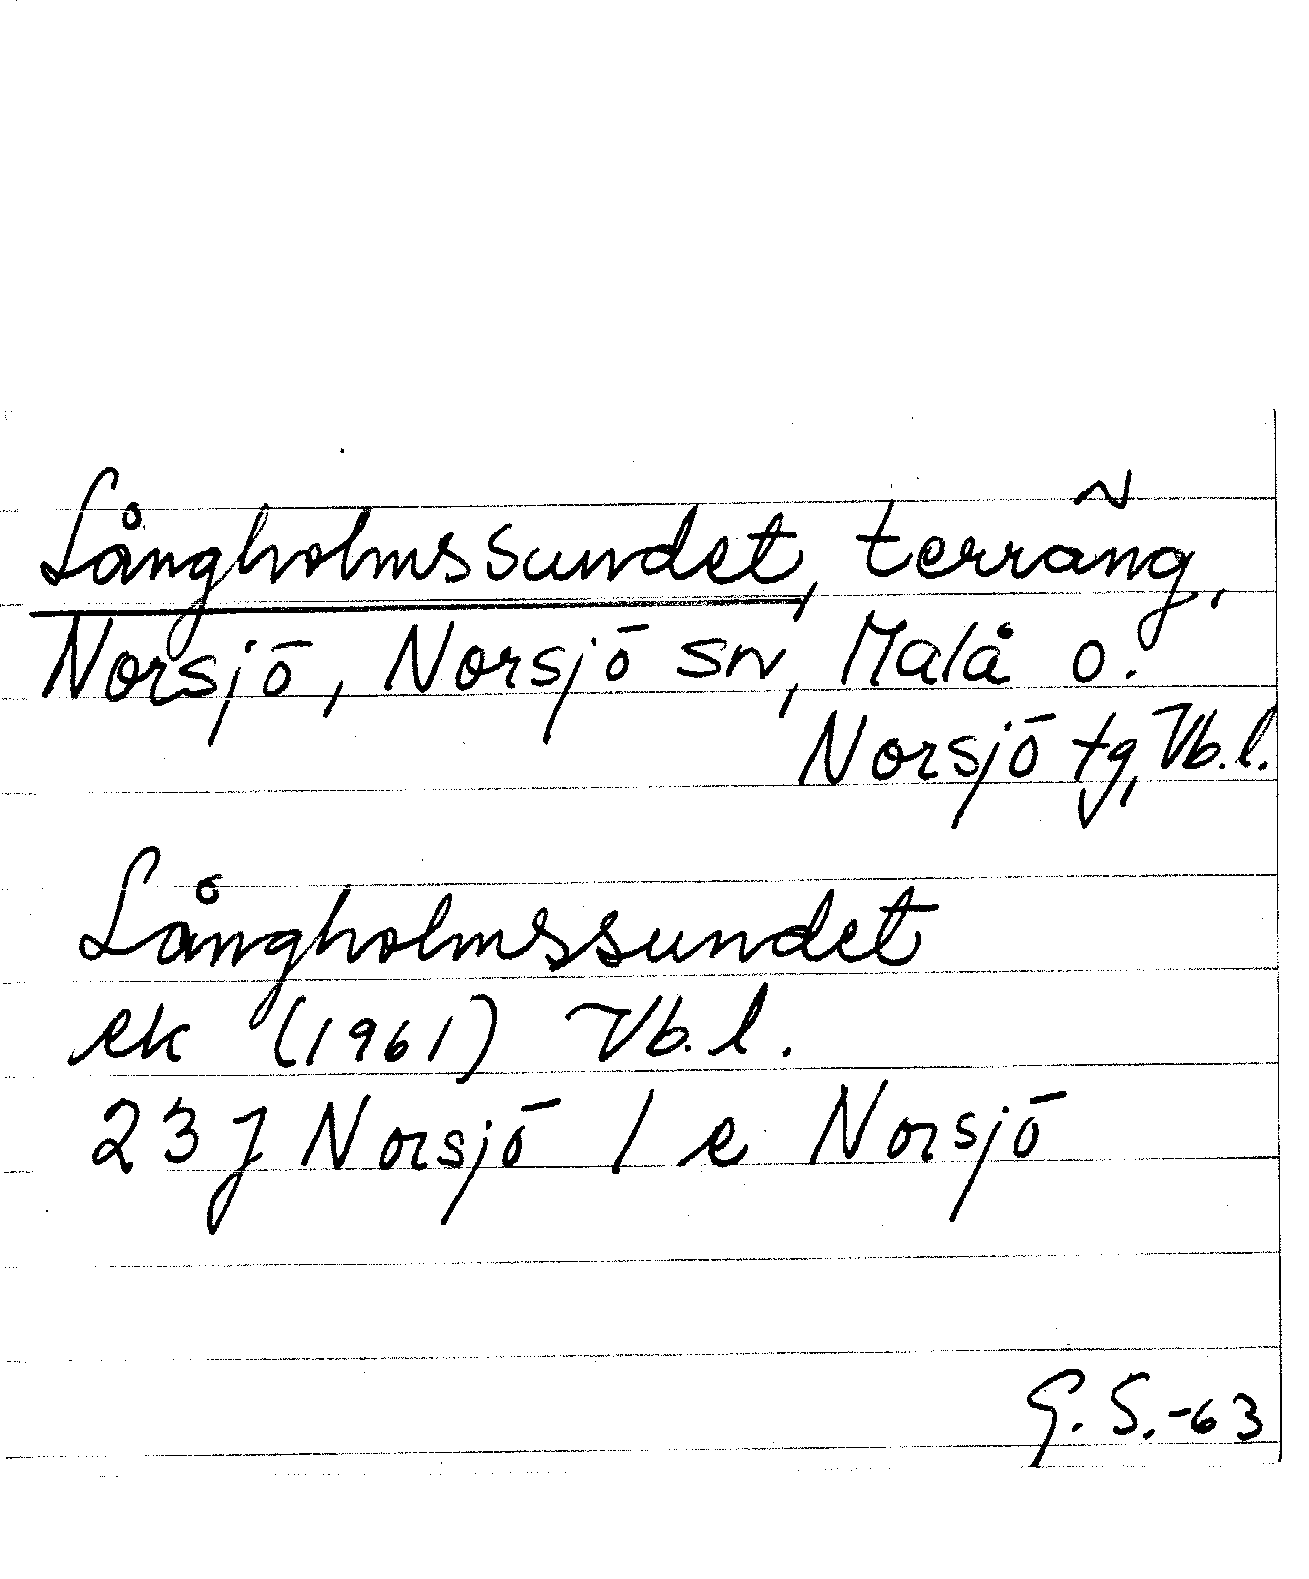 Långholmssundet, terräng,
Norsjö, Norsjö sn, Malå o.
Norsjö tg, Vb.l.
Långholmssundet
ek (1961) Vb.l.
23 J Norsjö 1 e Norsjö
G. S. -63